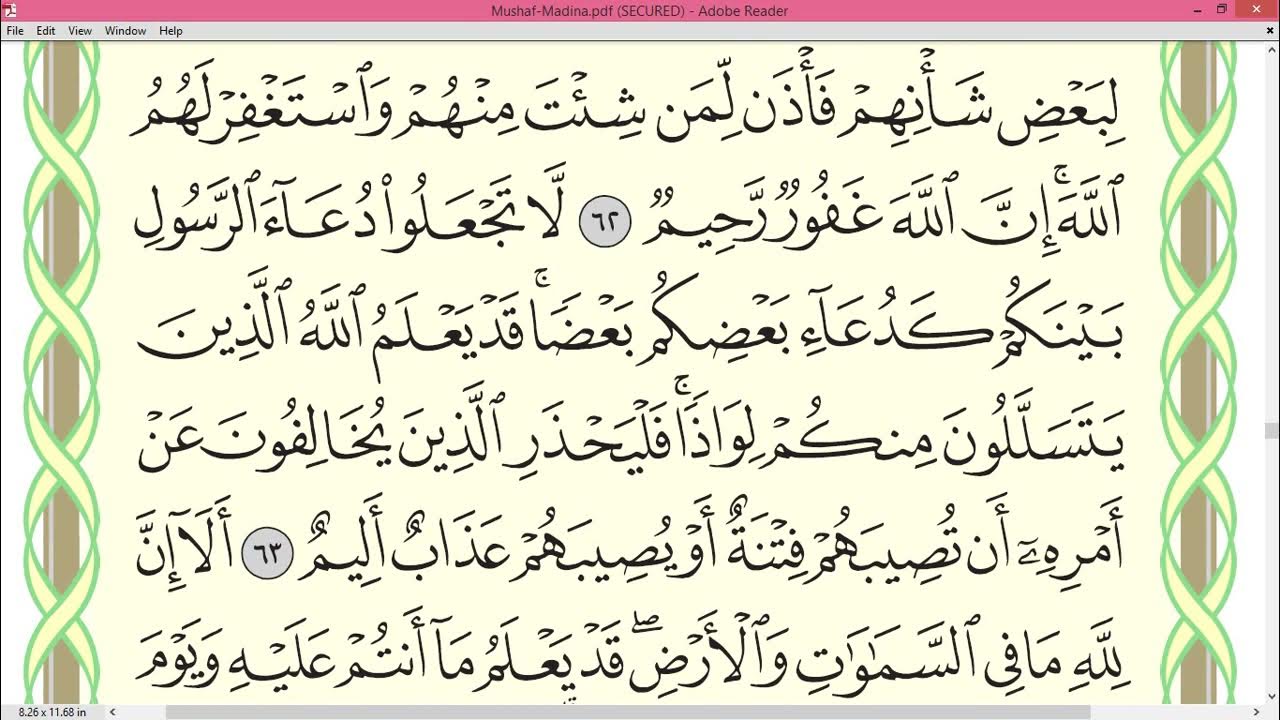 Mushaf-Madina.pdf (SECURED) - Adobe Reader
File Edit View Window Help
لِبَعْضِ شَأْنِهِمْ فَأْذَن لِّمَن شِئْتَ مِنْهُمْ وَٱسْتَغْفِرْ لَهُمُ
ٱللَّهَۚ إِنَّ ٱللَّهَ غَفُورٌ رَّحِيمٌ ٦٢ لَّا تَجْعَلُوا۟ دُعَآءَ ٱلرَّسُولِ
بَيْنَكُمْ كَدُعَآءِ بَعْضِكُم بَعْضًاۚ قَدْ يَعْلَمُ ٱللَّهُ ٱلَّذِينَ
يَتَسَلَّلُونَ مِنكُمْ لِوَاذًاۚ فَلْيَحْذَرِ ٱلَّذِينَ يُخَالِفُونَ عَنْ
أَمْرِهِۦٓ أَن تُصِيبَهُمْ فِتْنَةٌ أَوْ يُصِيبَهُمْ عَذَابٌ أَلِيمٌ ٦٣ أَلَآ إِنَّ
لِلَّهِ مَا فِى ٱلسَّمَـٰوَٰتِ وَٱلْأَرْضِۖ قَدْ يَعْلَمُ مَآ أَنتُمْ عَلَيْهِ وَيَوْمَ
8.26 x 11.68 in